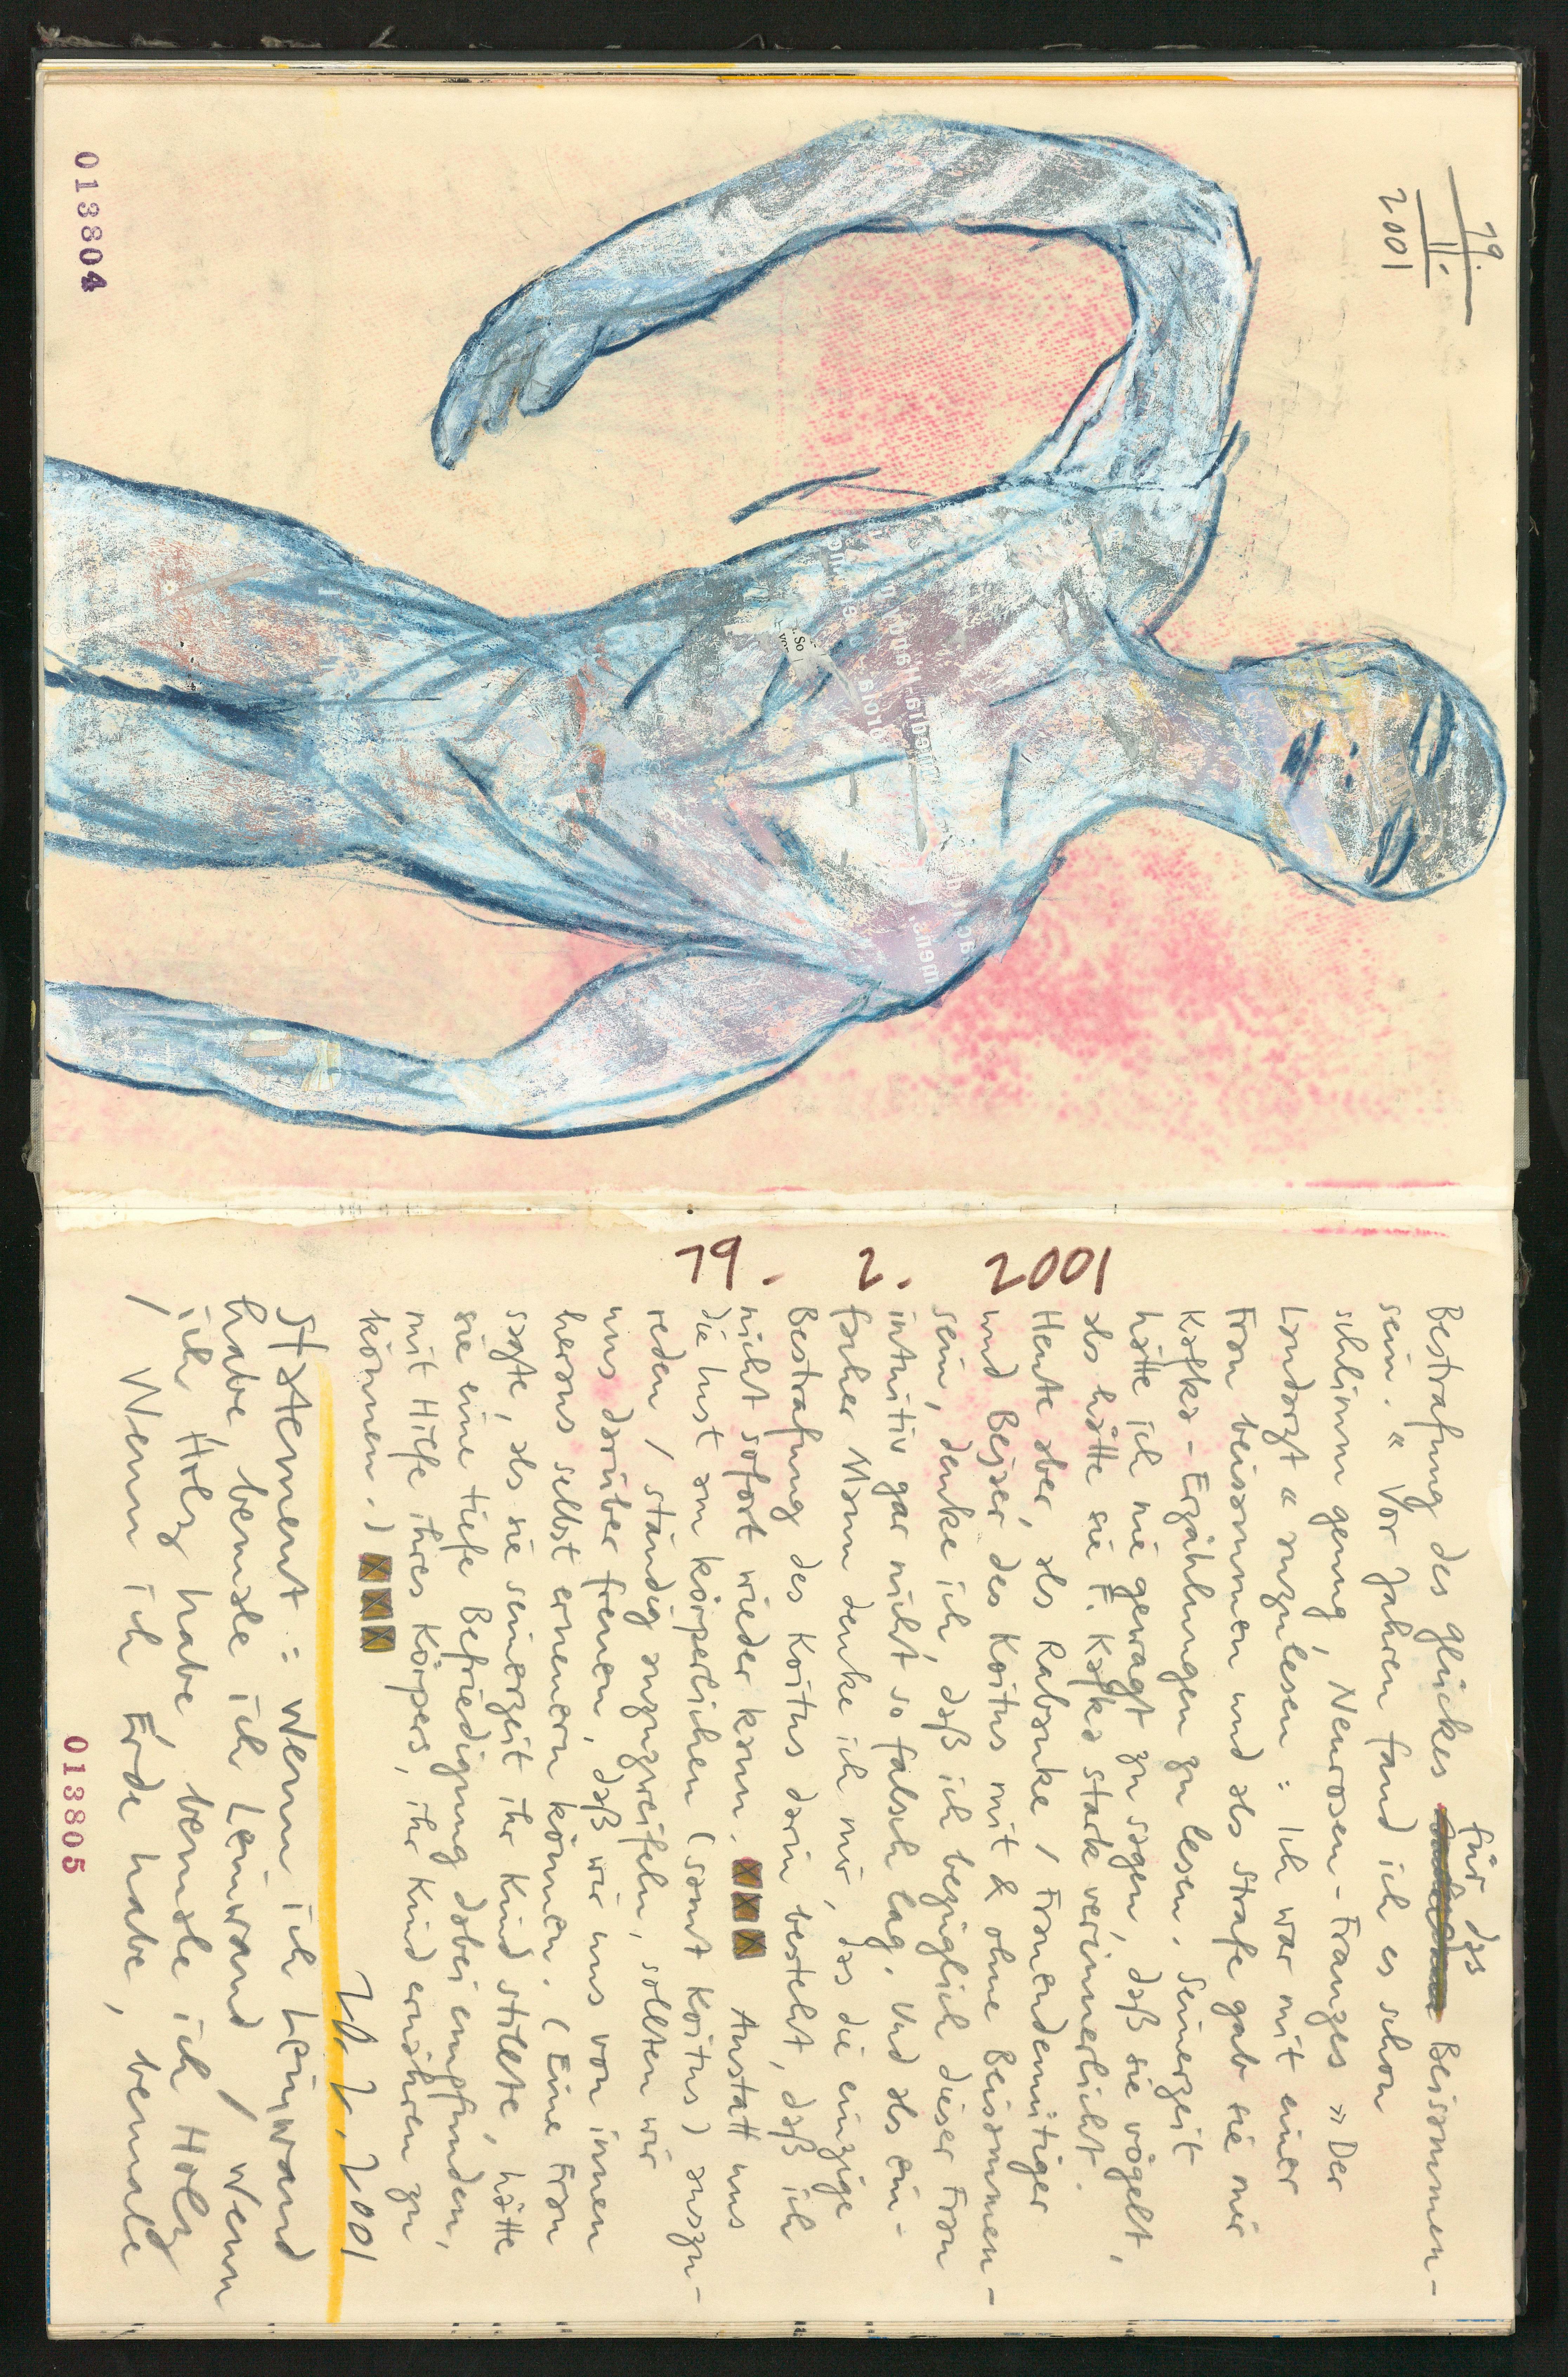 19.
II.
2001
013804
19. 2. 2001
für das
Bestrafung des Glückes Beisammen-
sein.« Vor Jahren fand ich es schon
schlimm genug, Neurosen-Franzes »Der
Landarzt« anzulesen: Ich war mit einer
Frau beisammen und als Strafe gab sie mir
Kafka-Erzählungen zu lesen. Seinerzeit
hätte ich nie gewagt zu sagen, daß sie vögelt,
als hätte sie F. Kafka stark verinnerlicht.
Heute aber, als Rabauke / Frauendemütiger
und Bejaer des Koitus mit & ohne Beisammen-
sein, denke ich, daß ich bezüglich dieser Frau
intuitiv gar nicht so falsch lag. Und als ein-
facher Mann denke ich mir, das die einzige
Bestrafung des Koitus darin besteht, daß ich
nicht sofort wieder kann. Anstatt uns
die Lust am körperlichen (samt Koitus) auszu-
reden / ständig anzuzweifeln, sollten wir
uns darüber freuen, daß wir uns von innen
heraus selbst erneuern können. (Eine Frau
sagte, als sie seinerzeit ihr Kind stillte, hätte
sie eine tiefe Befriedigung dabei empfunden,
mit Hilfe ihres Körpers, ihr Kind ernähren zu
können.)
20. 2. 2001
Statement: Wenn ich Leinwand
habe, bemale ich Leinwand / Wenn
ich Holz habe, bemale ich Holz
/ Wenn ich Erde habe, bemale
013805